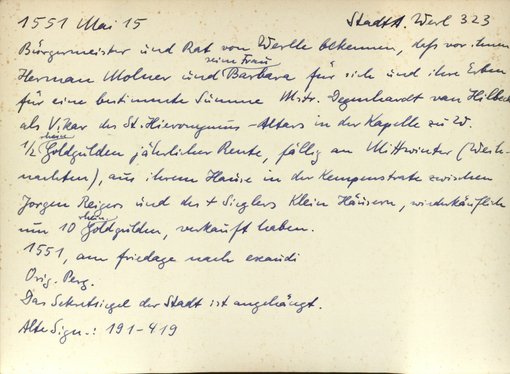 1551 Mai 15 StadtA. Werl 323
Bürgermeister und Rat von Werlle bekennen, daß vor ihnen
seine Frau
Herman Molner und Barbara für sich und ihre Erben
für eine bestimmte Summe Mstr. Degenhardt van Hilbeck
als Vikar des St. Hieronymus-Altars in der Kapelle zu W.
rhein
1/2 Goldgulden jährlicher Rente, fällig am Mittwinter (Weih-
nachten), aus ihrem Hause in der Kempenstrate zwischen
Jorgen Reigers und des + Sieglers Klein Häusern, wiederkäuflich
rhein
um 10 Goldgulden, verkauft haben.
1551, am friedage nach exaudi
Orig. Perg.
Das Sekretsiegel der Stadt ist angehängt.
Alte Sign.: 191-419